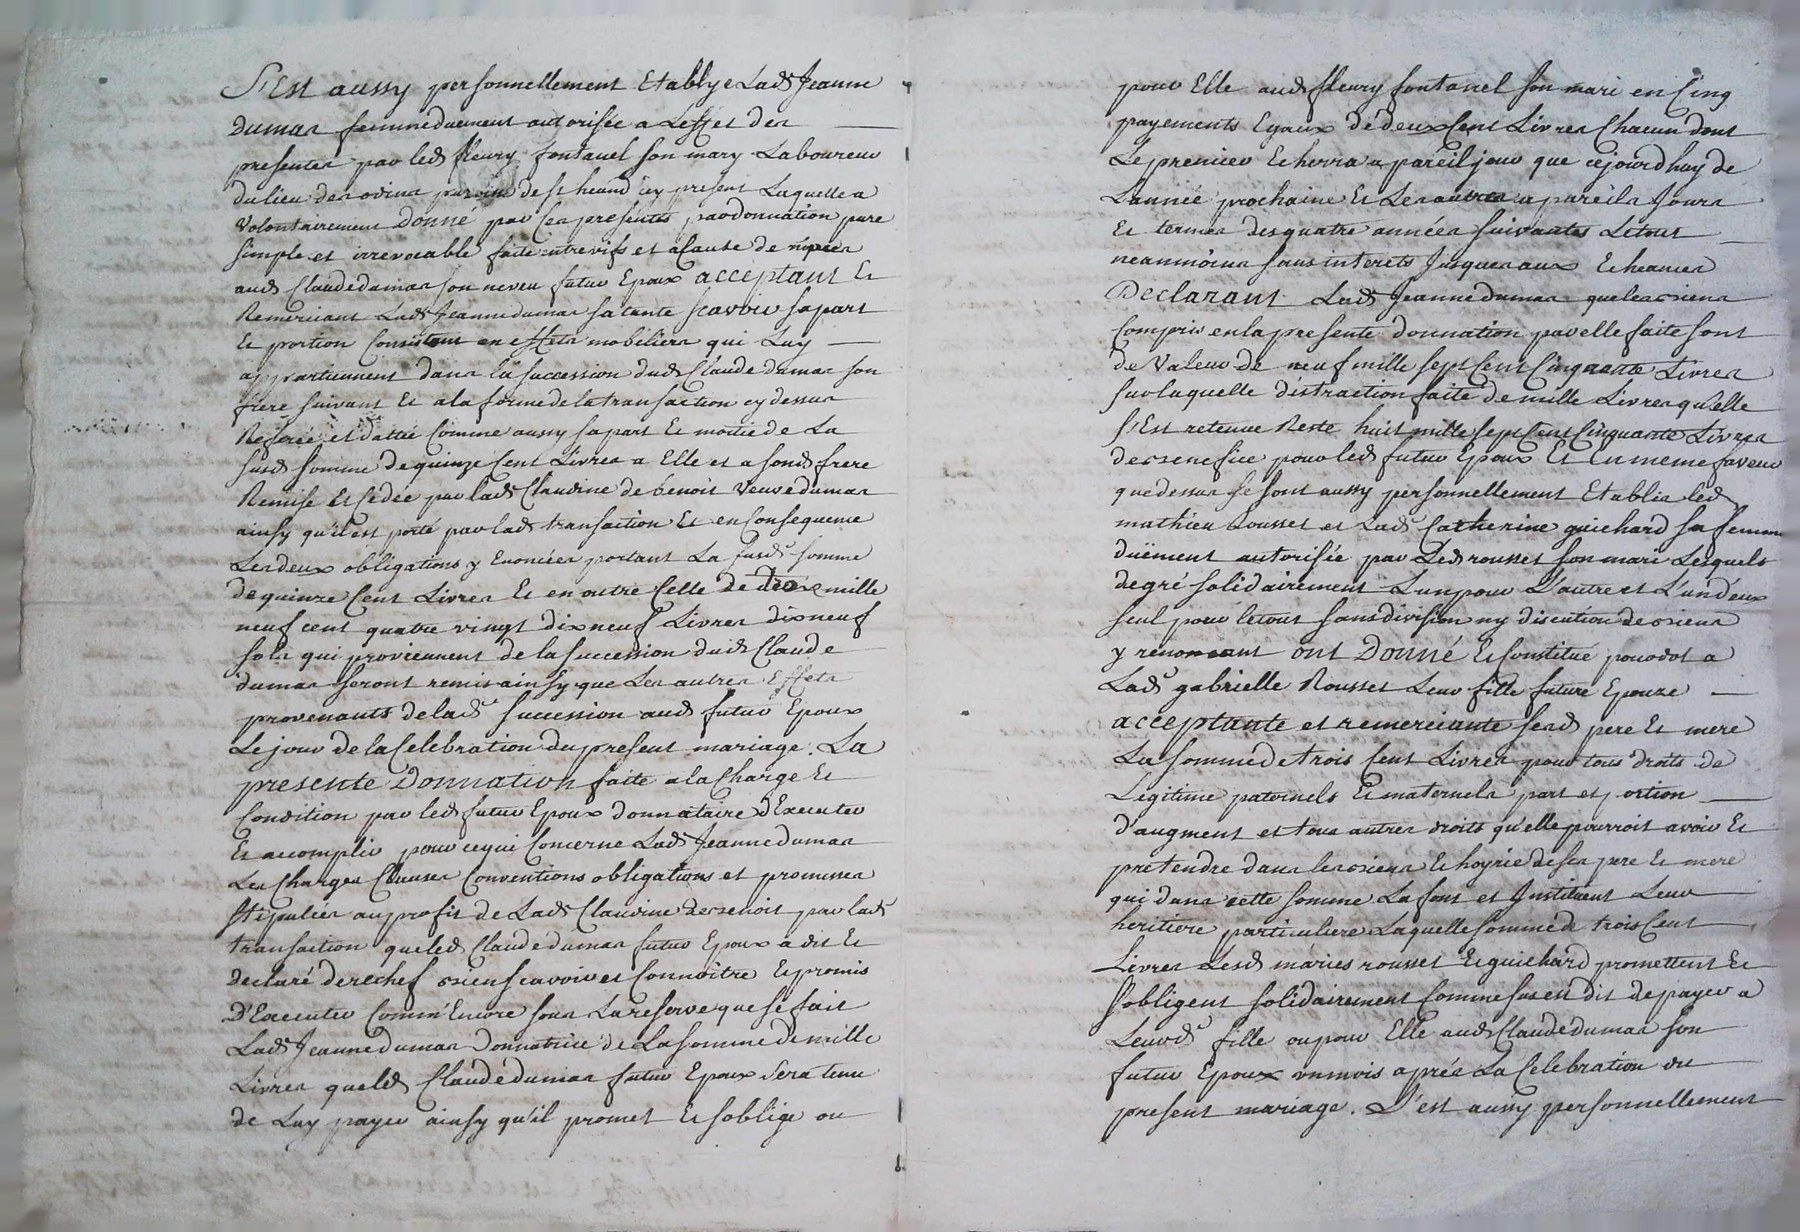 S'Est aussy personnellement Etablye Lad^e Jeanne
dumas femme duement autorisée a Leffet des
presentes par led fleury fontanel son mary Laboureur
du lieu des odins paroisse de st heand icy present Laquelle a
Volontairement Donné par Ces presentes par donnation pure
simple et irrevocable faite entrevifs et a Cause de nopces
aud Claude dumas son neveu futur Epoux acceptant Et
Remerciant Lad Jeanne dumas sa tante scavoir sa part
Et portion Consistant en effets mobiliers qui Luy
appartiennent dans la succession dud Claude dumas son
frere suivant Et a la forme de la transaction cy dessus
Referée et dattée Comme aussy sa part Et moitié de La
susd somme de quinze Cent Livres a Elle et a sond frere
Remise Et Cedée par lad Claudine de benoit Veuve dumas
ainsy qu'il est porté par lad transaction Et en Consequence
Les deux obligations y Enoncées portant La susd^e somme
de quinze Cent Livres Et en outre Celle de mille
neuf cent quatre vingt dix neuf Livres dix neuf
sols qui proviennent de la succession dud Claude
dumas seront remis ainsy que Les autres Effets
provenants de lad^e succession aud futur Epoux
Le jour de la Celebration du present mariage. La
presente Donnation faite a la Charge Et
Condition par led futur Epoux donnataire d'Executer
Et accomplir pour ce qui Concerne Lad Jeanne dumas
Les Charges Clauses Conventions obligations et promesses
stipulées au profit de Lad Claudine de benoit par lad
transaction que led Claude dumas futur Epoux a dit Et
declaré derechef bien scavoir et Connoitre Et promis
D'Executer Comm'Encore sous La reserve que se fait
Lad Jeanne dumas Donnatrice de La somme de mille
Livres que led Claude dumas futur Epoux sera tenu
de Luy payer ainsy qu'il promet Et s'oblige ou
pour Elle aud fleury fontanel son mari en Cinq
payements Egaux de deux Cent Livres Chacun dont
Le premier Echerra a pareil jour que cejourd'huy de
L'année prochaine Et Les autres a pareils Jours
Et termes des quatre années suivantes Le tout
neanmoins sans interets Jusques aux Echeances
Declarant Lad Jeanne dumas que les biens
Compris en la presente donnation par elle faite sont
de Valeur de neuf mille sept Cent Cinquante Livres
sur laquelle distraction faite de mille Livres qu'elle
s'Est retenue Reste huit mille sept Cent Cinquante Livres
de benefice pour led futur Epoux Et En meme faveur
que dessus se sont aussy personnellement Etablis led
mathieu Rousset et Lad^e Catherine guichard sa femme
duëment autorisée par Led rousset son mari Lesquels
de gré solidairement L'un pour L'autre et L'un d'eux
seul pour le tout sans division ny discution de biens
y renoncant ont Donné Et Constitué pour dot a
Lad^e gabrielle Rousset Leur fille future Epouze
acceptante et remerciante sesd pere Et mere
La somme de trois Cent Livres pour tous droits de
Legitime paternels Et maternels part et portion
d'augment et tous autres droits qu'elle pourroit avoir Et
pretendre dans les biens Et hoyrie de ses pere Et mere
qui dans cette somme La font et Jnstituent Leur
heritiere particuliere Laquelle somme de trois Cent
Livres Lesd mariés rousset Et guichard promettent Et
s'obligent solidairement Comme sus est dit de payer a
Leurd^e fille ou pour Elle aud Claude dumas son
futur Epoux un mois aprés La Celebration du
present mariage. S'est aussy personnellement